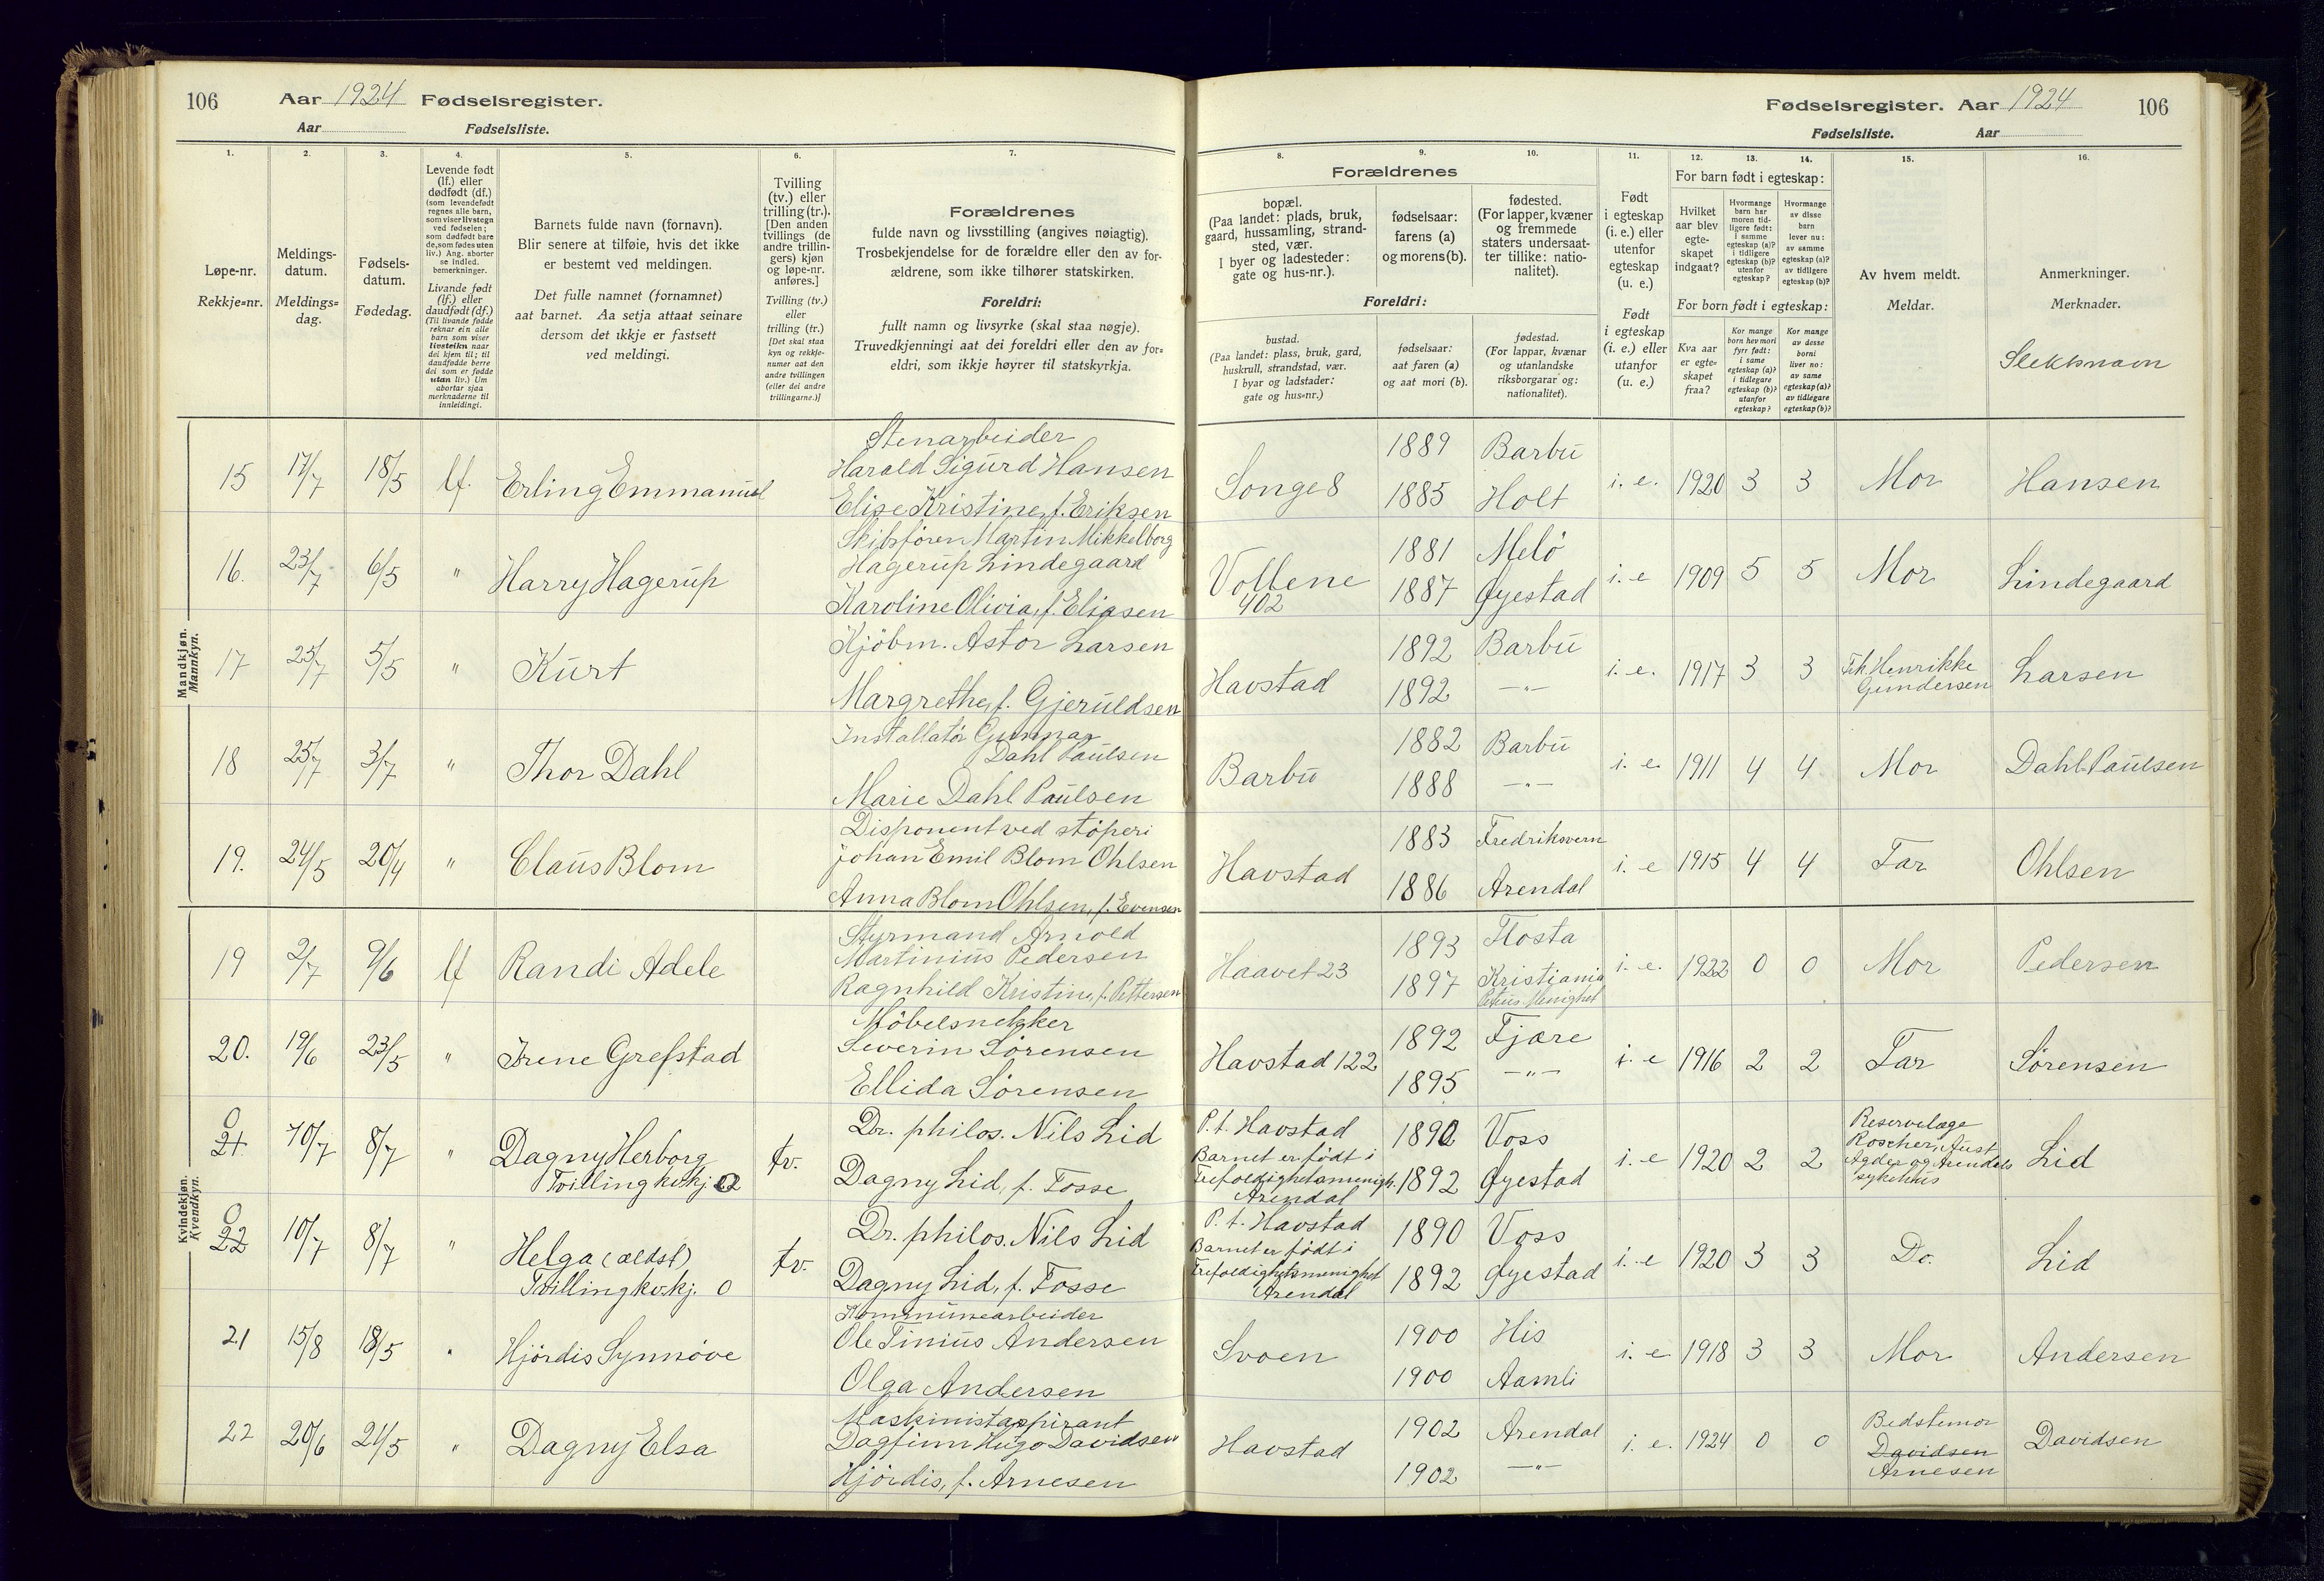 106 Aar 1924 Fødselsregister.
Aar Fødselsliste.
Fødselsregister. Aar 1924 106
Fødselsliste. Aar
1.
Løpe-nr.
Rekkje=nr.
2.
Meldings-
datum.
Meldings=
dag.
3.
Fødsels-
datum.
Fødedag.
4.
Levende født
(lf.) eller
dødfødt (df.)
(som levendefødt
regnes alle barn,
som viser livstegn
ved fødselen;
som dødfødt bare
de, som fødes uten
liv.) Ang. aborter
se indled.
bemerkninger.
Livande født
(lf.) eller
daudfødt (df.)
(Til livande fødde
reknar ein alle
barn som viser
livsteikn naar
dei kjem til; til
daudfødde berre
dei som er fødde
utan liv.) Um
abortar sjaa
merknaderne til
innleidingi.
5.
Barnets fulde navn (fornavn).
Blir senere at tilføie, hvis det ikke
er bestemt ved meldingen.
Det fulle namnet (fornamnet)
aat barnet. Aa setja attaat seinare
dersom det ikkje er fastsett
ved meldingi.
6.
Tvilling
(tv.) eller
trilling (tr.).
[Den anden
tvillings (de
andre trillin-
gers) kjøn
og løpe-nr.
anføres.]
Tvilling (tv.)
eller
trilling (tr.)
[Det skal staa
kyn og rekkje-
numer aat den
andre tvillingen
(eller dei andre
trillingarne.)]
7.
Forældrenes
fulde navn og livsstilling (angives nøiagtig).
Trosbekjendelse for de forældre eller den av for-
ældrene, som ikke tilhører statskirken.
Foreldri:
fullt namn og livsyrke (skal staa nøgje).
Truvedkjenningi aat dei foreldri eller den av for=
eldri, som ikkje høyrer til statskyrkja.
Forældrenes
8.
bopæl.
(Paa landet: plads, bruk,
gaard, hussamling, strand-
sted, vær.
I byer og ladesteder:
gate og hus-nr.).
9.
fødselsaar:
farens (a)
og morens (b).
10.
fødested.
(For lapper, kvæner
og fremmede
staters undersaat-
ter tillike: natio-
nalitet).
Foreldri:
bustad.
(Paa landet: plass, bruk, gard,
huskrull, strandstad, vær.
I byar og ladstader:
gate og hus=nr.)
fødselsaar:
aat faren (a)
og aat mori (b).
fødestad.
(For lappar, kvænar
og utanlandske
riksborgarar og:
nationalitet).
11.
Født
i egteskap
(i. e.) eller
utenfor
egteskap
(u. e.)
Født
i egteskap
(i. e.) eller
utanfor
(u. e.)
12. 13. 14.
For barn født i egteskap:
Hvilket
aar blev
egte-
skapet
indgaat?
Hvormange
barn har
moren tid-
ligere født:
i samme
egteskap (a)?
i tidligere
egteskap (b)?
utenfor
egteskap?
Hvormange
av disse
barn
lever nu:
av samme
egteskap (a)?
av tidligere
egteskap (b)?
For born født i egteskap:
Kva aar
er egte-
skapet
fraa?
Kor mange
born hev mori
fyrr født:
i same
egteskap (a)?
i tidlegare
egteskap (b)?
utanfor
egteskap?
Kor mange
av desse
borni
liver no:
av same
egteskap (a)?
av tidlegare
egteskap (b)?
15.
Av hvem meldt.
Meldar.
16.
Anmerkninger.
Merknader.
Slektsnavn
Mandkjøn.
Mannkyn.
Stenarbeider
15 17/7 18/5 lf. Erling Emmanuel Harald Sigurd Hansen
Elise Kristine, f. Eriksen
Songe 8 1889 Barbu i. e. 1920 3 3 Mor Hansen
1885 Holt
Skibsfören Martin Mikkelborg
16. 23/7 6/5 " Harry Hagerup Hagerup Lindegaard
Karoline Olivia, f. Eliasen
Vollene 1881 Melö i. e 1909 5 5 Mor Lindegaard
402 1887 Øyestad
Kjöbm. Astor Larsen
17 25/7 5/5 " Kurt
Margrethe, f. Gjeruldsen
Havstad 1892 Barbu i. e. 1917 3 3 Frk. Henrikke Larsen
1892 —"— Gundersen
Installatör Gunnar
18 25/7 3/7 " Thor Dahl Dahl Paulsen
Marie Dahl Paulsen
Barbu 1882 Barbu i. e. 1911 4 4 Mor Dahl-Paulsen
1888 —"—
Disponent ved stöperi
19. 24/5 20/4 " Claus Blom Johan Emil Blom Ohlsen
Anna Blom Ohlsen, f. Evensen
Havstad 1883 Fredriksvern i. e 1915 4 4 Far Ohlsen
1886 Arendal
Kvindekjøn.
Kvendkyn.
Styrmand Arnold
19 2/7 9/6 lf Randi Adele Martinius Pedersen
Ragnhild Kristine, f. Pettersen
Haavet 23 1893 Flosta i. e. 1922 0 0 Mor Pedersen
1897 Kristiania
Petrus Menighet
Möbelsnekker
20. 19/6 23/5 " Irene Grefstad Severin Sörensen
Ellida Sörensen
Havstad 122 1892 Fjære i. e 1916 2 2 Far Sörensen
1895 —"—
0
21 10/7 8/7 " Dagny Herborg tv. Dr. philos. Nils Lid
Tvilling kv.kj. 0 Dagny Lid, f. Fosse
P. t. Havstad 1890 Voss i. e 1920 2 2 Reservelæge Lid
Barnet er födt i Roscher, Aust
Trefoldighetsmenigh. 1892 Øyestad Agder og Arendals
Arendal sykehus
0
22 10/7 8/7 " Helga (ældst) tv. Dr. philos. Nils Lid
Tvilling kv.kj. 0 Dagny Lid, f. Fosse
P. t. Havstad 1890 Voss i. e 1920 3 3 Do. Lid
Barnet er födt i
Trefoldighetsmenighet 1892 Øyestad
Arendal
Kommunearbeider
21 15/8 18/5 " Hjördis Synnöve Ole Tinius Andersen
Olga Andersen
Svoen 1900 His i. e 1918 3 3 Mor Andersen
1900 Aamli
Maskinistaspirant
22 20/6 21/5 " Dagny Elsa Dagfinn Hugo Davidsen
Hjördis, f. Arnesen
Havstad 1902 Arendal i. e. 1924 0 0 Bedstemor Davidsen
1902 —"— Davidsen
Arnesen